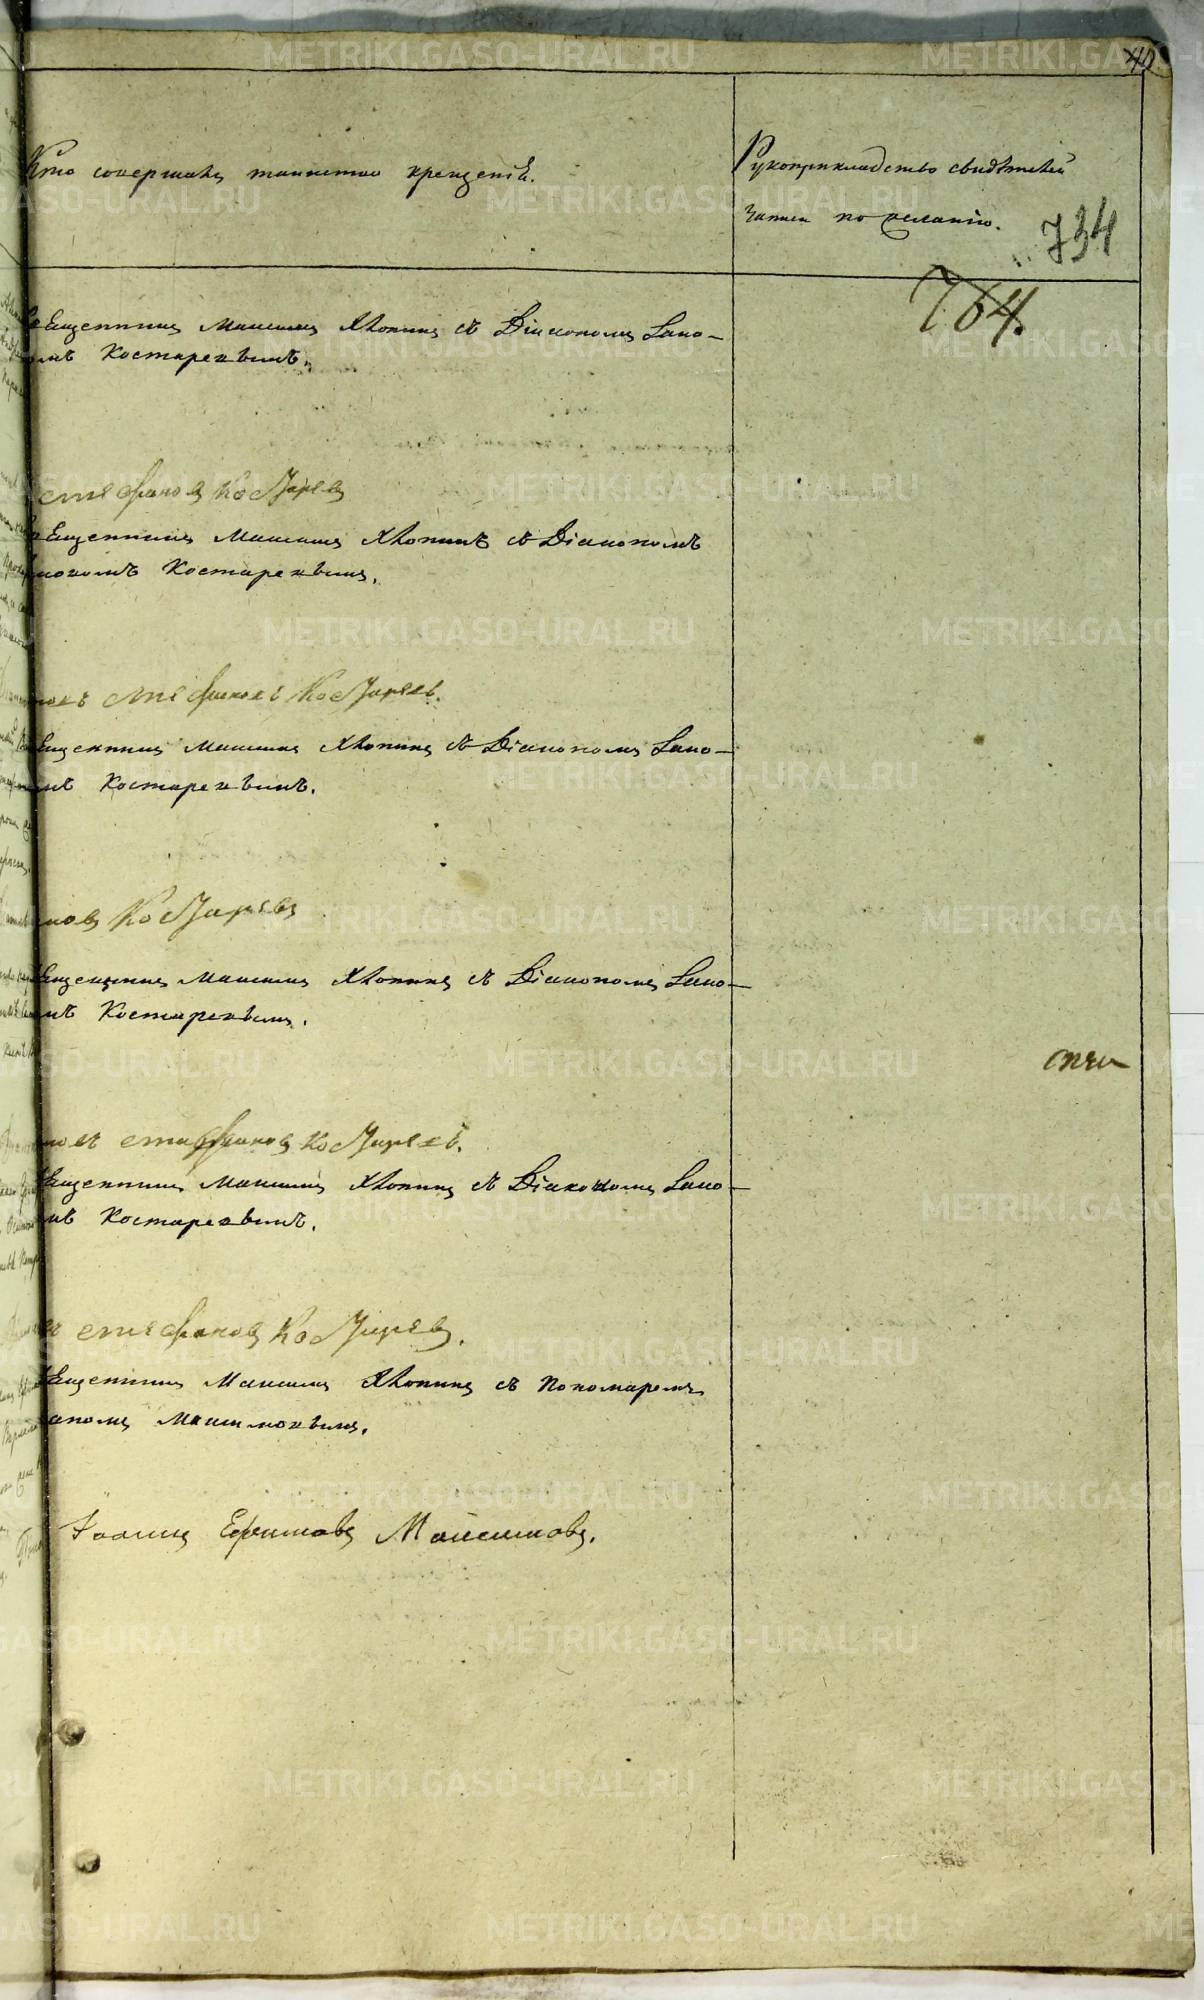 40
Кто совершалъ таинство крещенія.
Рукоприкладство свидѣтелей
записи по желанію.
734
764.
Священникъ Максимъ Хлопинъ съ Діакономъ Іако-
вомъ Костаревымъ.
Стефановъ Костаревъ
Священникъ Максимъ Хлопинъ съ Діакономъ
Іаковомъ Костаревымъ.
Стефановъ Костаревъ.
Священникъ Максимъ Хлопинъ съ Діакономъ Іако-
вомъ Костаревымъ.
новъ Костаревъ
Священникъ Максимъ Хлопинъ съ Діакономъ Іако-
вомъ Костаревымъ.
Стефановъ Костаревъ.
Священникъ Максимъ Хлопинъ съ Діакономъ Іако-
вомъ Костаревымъ.
Стефановъ Костаревъ.
Священникъ Максимъ Хлопинъ съ Пономаремъ
Максимовымъ.
Іоаннъ Ефимовъ Максимовъ.
METRIKI.GASO-URAL.RU